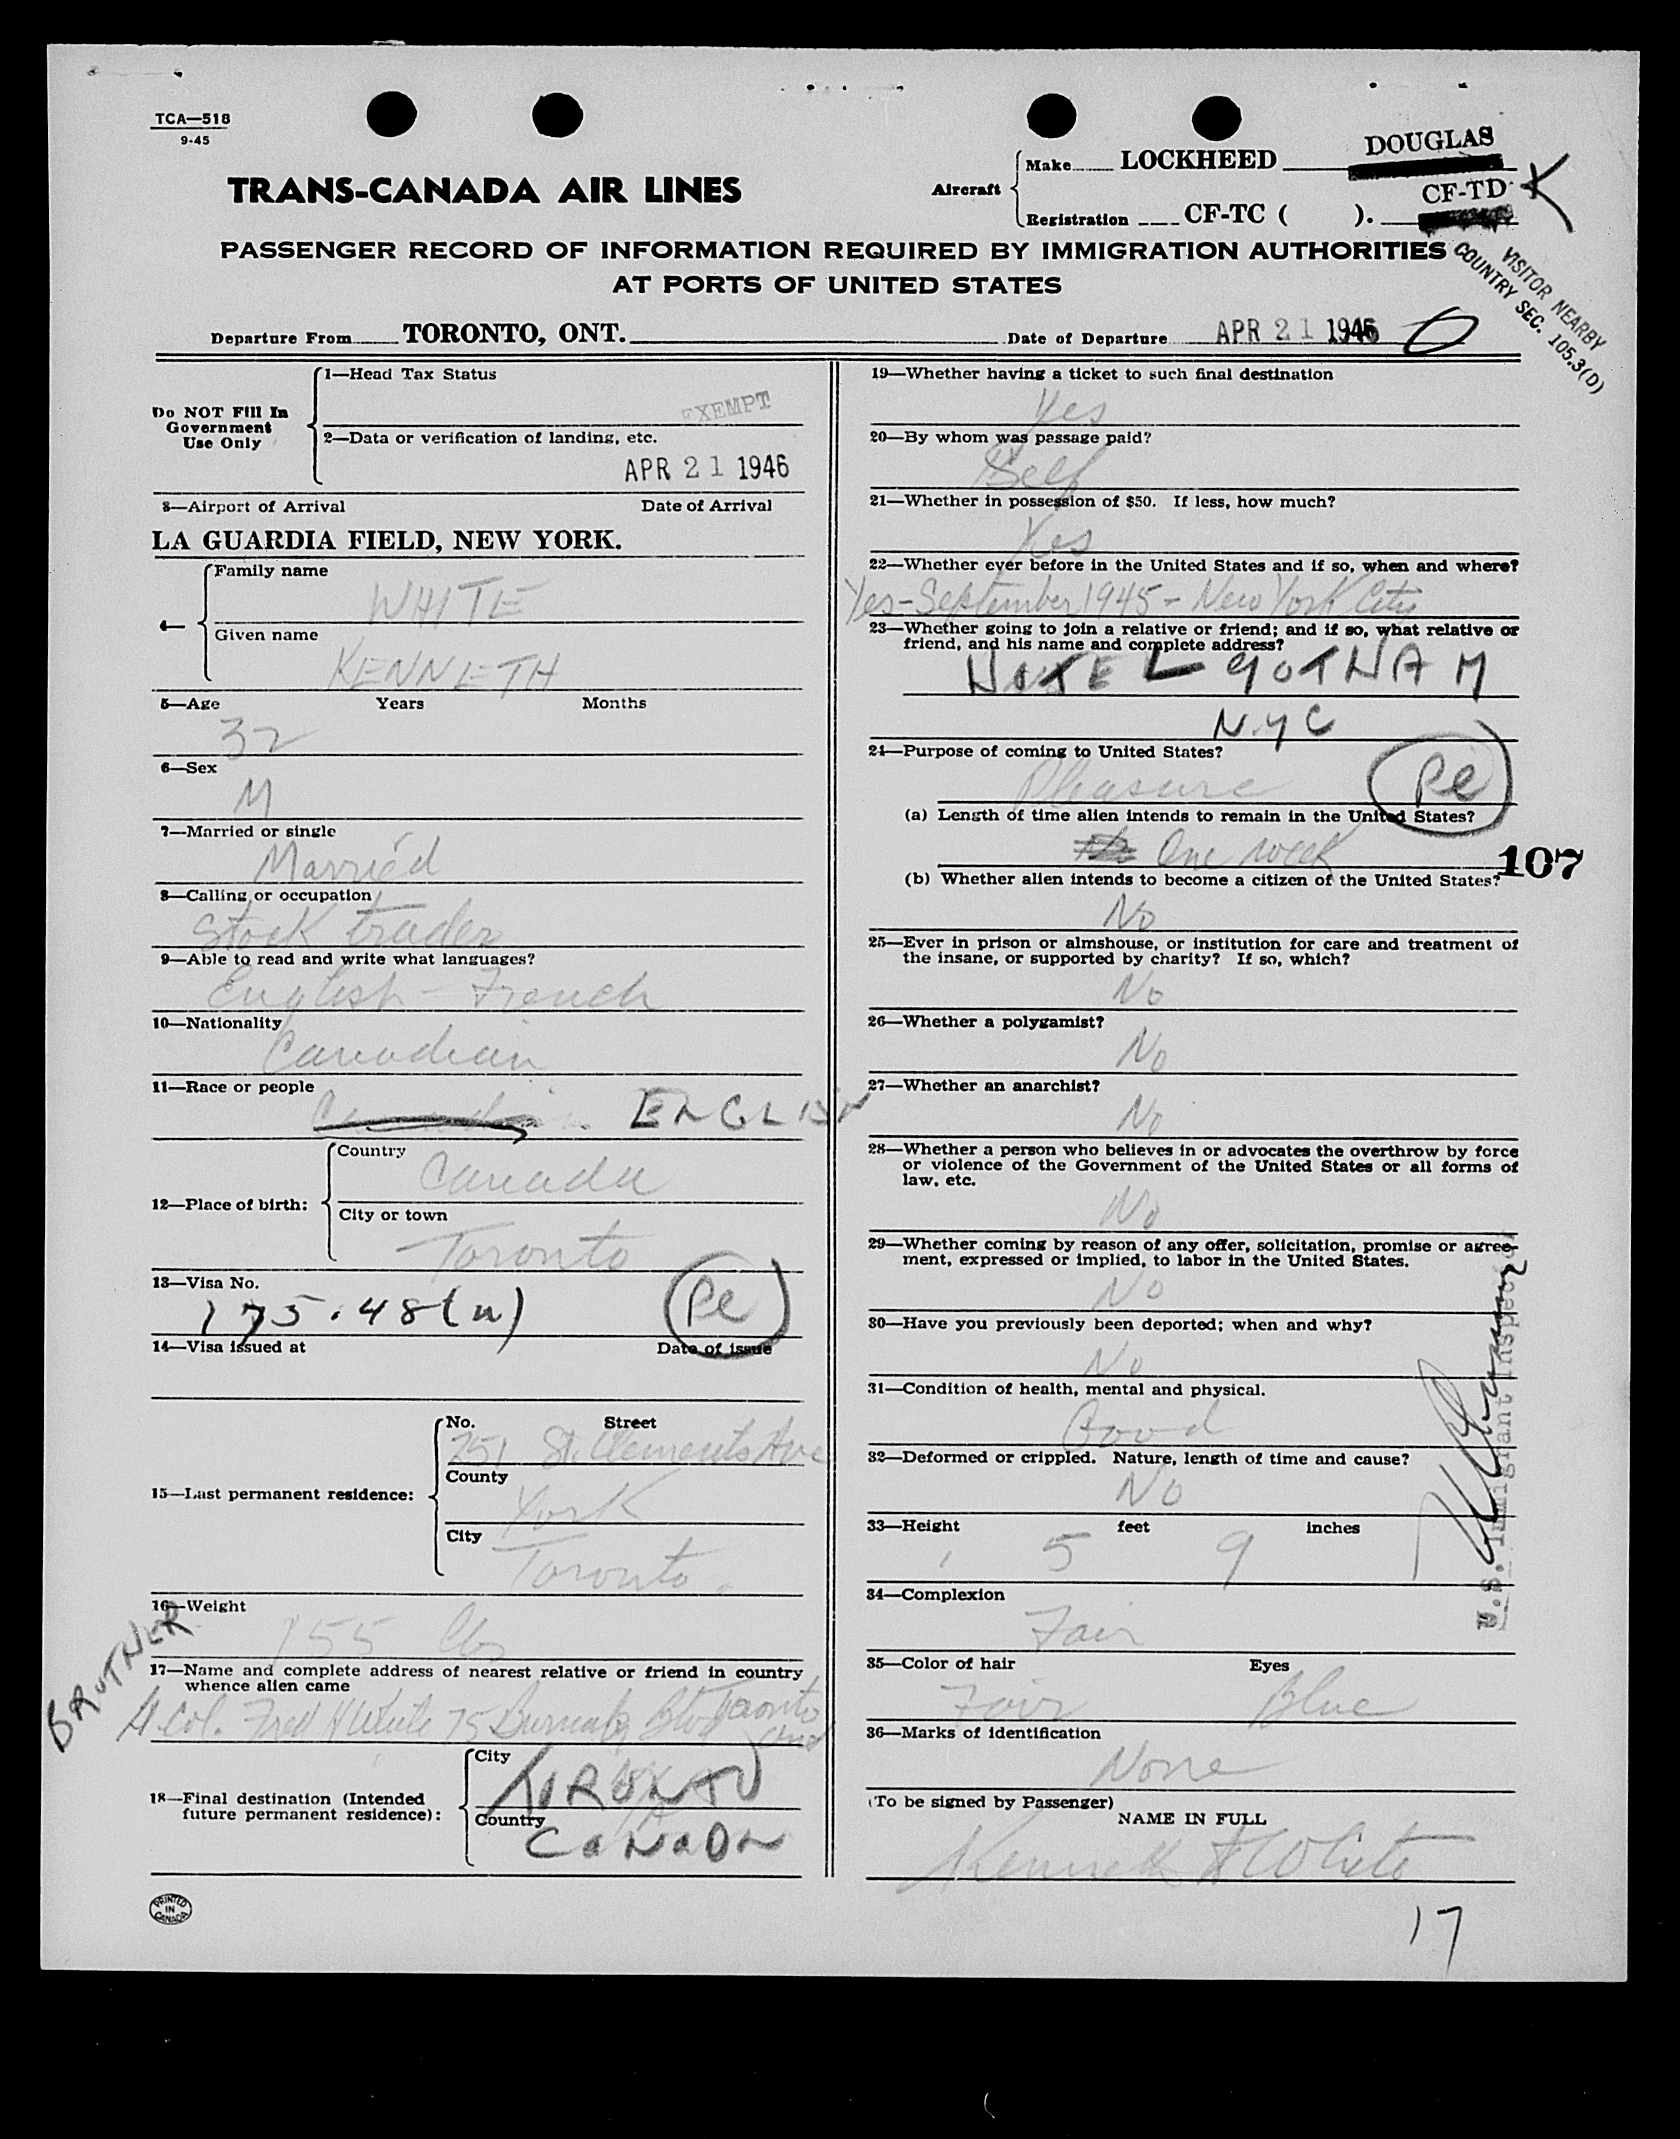 TCA—518
9-45
TRANS-CANADA AIR LINES
Aircraft
Make LOCKHEED DOUGLAS
Registration CF-TC ( ). CF-TD-K
PASSENGER RECORD OF INFORMATION REQUIRED BY IMMIGRATION AUTHORITIES
AT PORTS OF UNITED STATES
VISITOR NEARBY
COUNTRY SEC. 105.3(D)
Departure From TORONTO, ONT. Date of Departure APR 21 1946
Do NOT Fill In
Government
Use Only
1—Head Tax Status
EXEMPT
2—Data or verification of landing, etc.
APR 21 1946
3—Airport of Arrival Date of Arrival
LA GUARDIA FIELD, NEW YORK.
4—
Family name
WHITE
Given name
KENNETH
5—Age Years Months
32
6—Sex
M
7—Married or single
Married
8—Calling or occupation
Stock trader
9—Able to read and write what languages?
English - French
10—Nationality
Canadian
11—Race or people
Canadian ENGLISH
12—Place of birth:
Country
Canada
City or town
Toronto
13—Visa No.
175.48(a) Pe
14—Visa issued at Date of issue
15—Last permanent residence:
No. Street
251 St. Clements Ave
County
York
City
Toronto.
16—Weight
155 lbs
BROTHER
17—Name and complete address of nearest relative or friend in country
whence alien came
Lt. Col. Fred White 75 Toronto
Ont
18—Final destination (Intended
future permanent residence):
City
TORONTO
Country
CANADA
PRINTED
IN
CANADA
19—Whether having a ticket to such final destination
Yes
20—By whom was passage paid?
Self
21—Whether in possession of $50. If less, how much?
Yes
22—Whether ever before in the United States and if so, when and where?
Yes - September 1945 - New York City
23—Whether going to join a relative or friend; and if so, what relative or
friend, and his name and complete address?
HOTEL GOTHAM
N.Y.C
24—Purpose of coming to United States?
Pleasure Pe
(a) Length of time alien intends to remain in the United States?
One week
107
(b) Whether alien intends to become a citizen of the United States?
No
25—Ever in prison or almshouse, or institution for care and treatment of
the insane, or supported by charity? If so, which?
No
26—Whether a polygamist?
No
27—Whether an anarchist?
No
28—Whether a person who believes in or advocates the overthrow by force
or violence of the Government of the United States or all forms of
law, etc.
No
29—Whether coming by reason of any offer, solicitation, promise or agree-
ment, expressed or implied, to labor in the United States.
No
30—Have you previously been deported; when and why?
No
31—Condition of health, mental and physical.
Good
32—Deformed or crippled. Nature, length of time and cause?
No
33—Height feet inches
5 9
U.S. Immigrant Inspector
34—Complexion
Fair
35—Color of hair Eyes
Fair Blue
36—Marks of identification
None
(To be signed by Passenger)
NAME IN FULL
Kenneth White
17